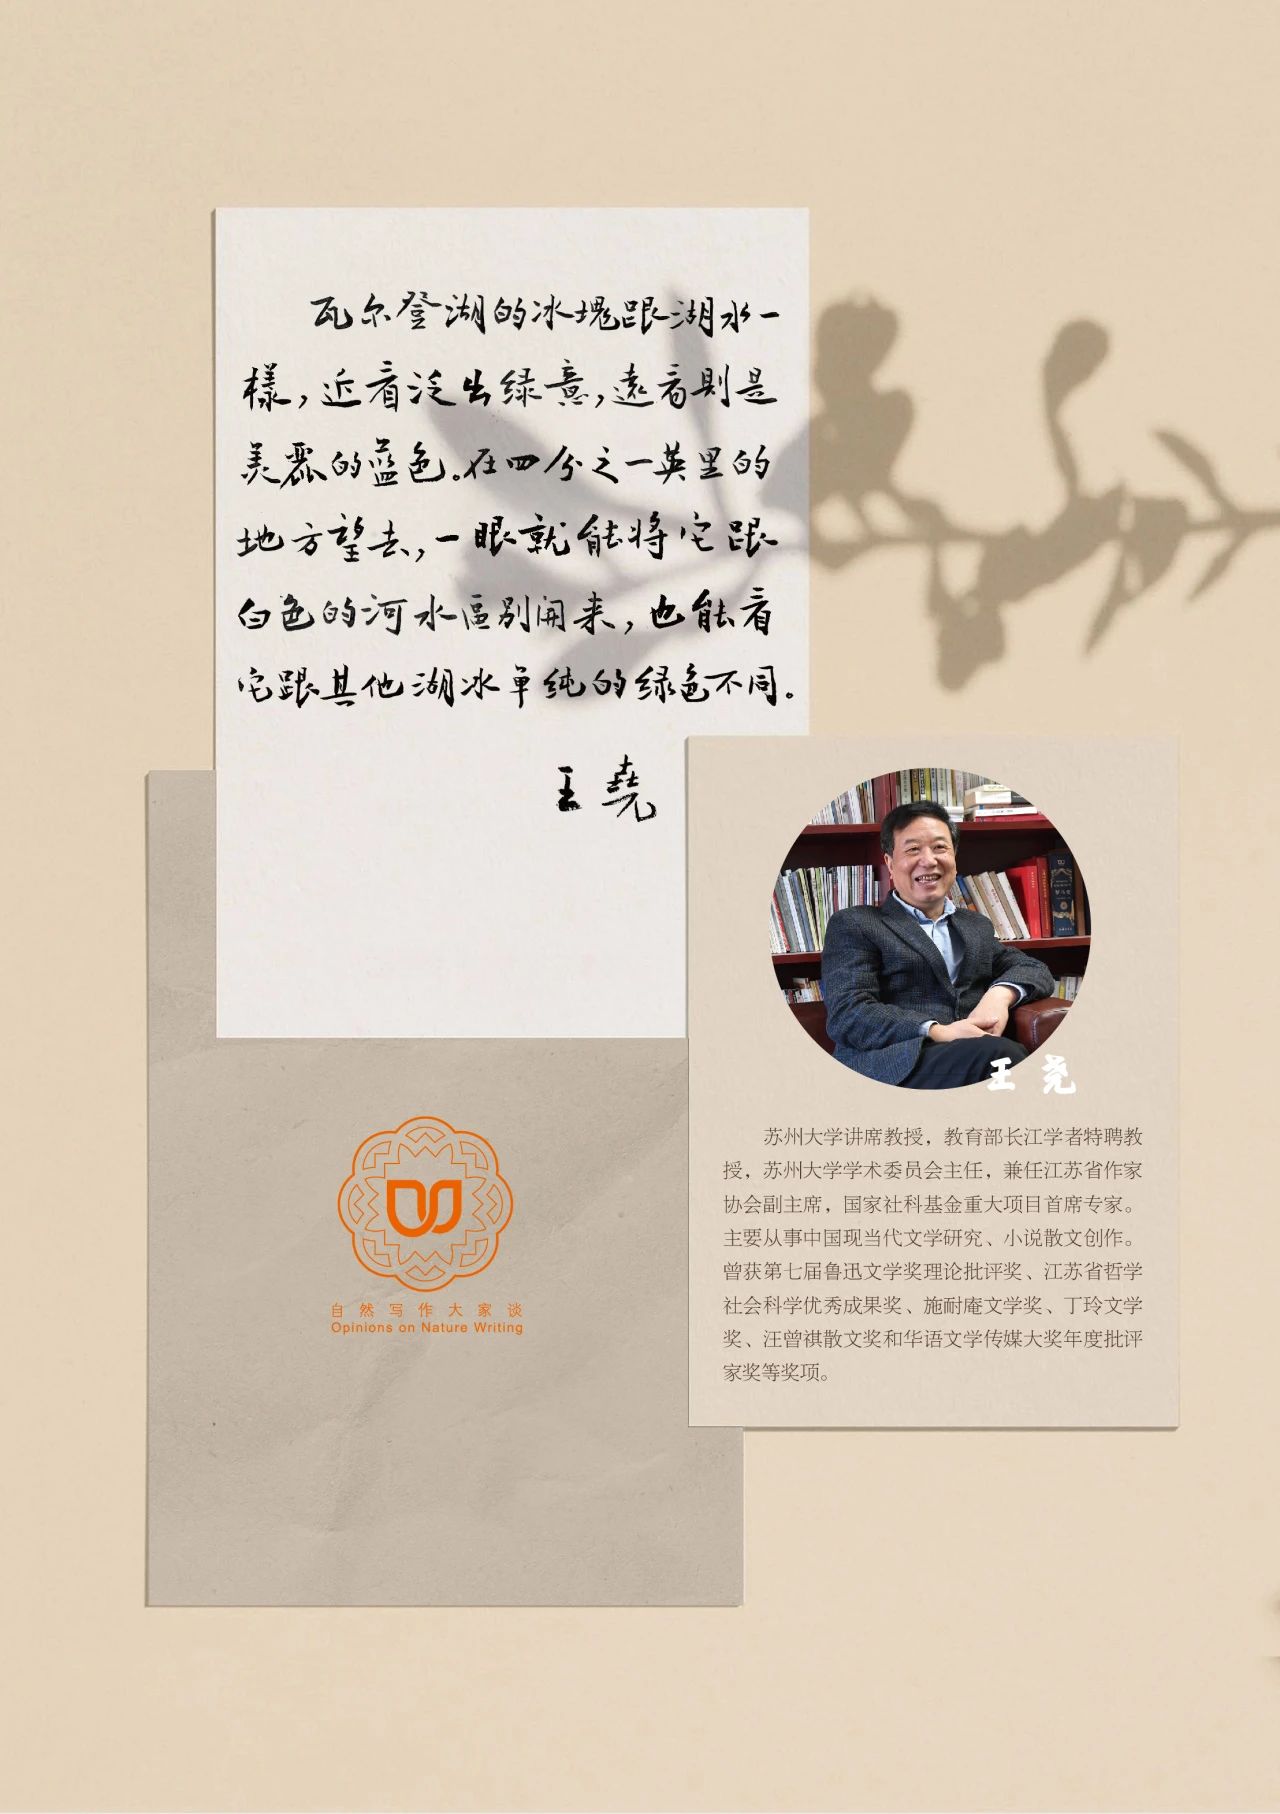 瓦尔登湖的冰塊跟湖水一
樣，近看泛出绿意，遠看則是
美麗的蓝色。在四分之一英里的
地方望去，一眼就能将它跟
白色的河水區别開来，也能看
它跟其他湖冰单纯的绿色不同。
王堯
王尧
苏州大学讲席教授，教育部长江学者特聘教
授，苏州大学学术委员会主任，兼任江苏省作家
协会副主席，国家社科基金重大项目首席专家。
主要从事中国现当代文学研究、小说散文创作。
曾获第七届鲁迅文学奖理论批评奖、江苏省哲学
社会科学优秀成果奖、施耐庵文学奖、丁玲文学
奖、汪曾祺散文奖和华语文学传媒大奖年度批评
家奖等奖项。
自然写作大家谈
Opinions on Nature Writing